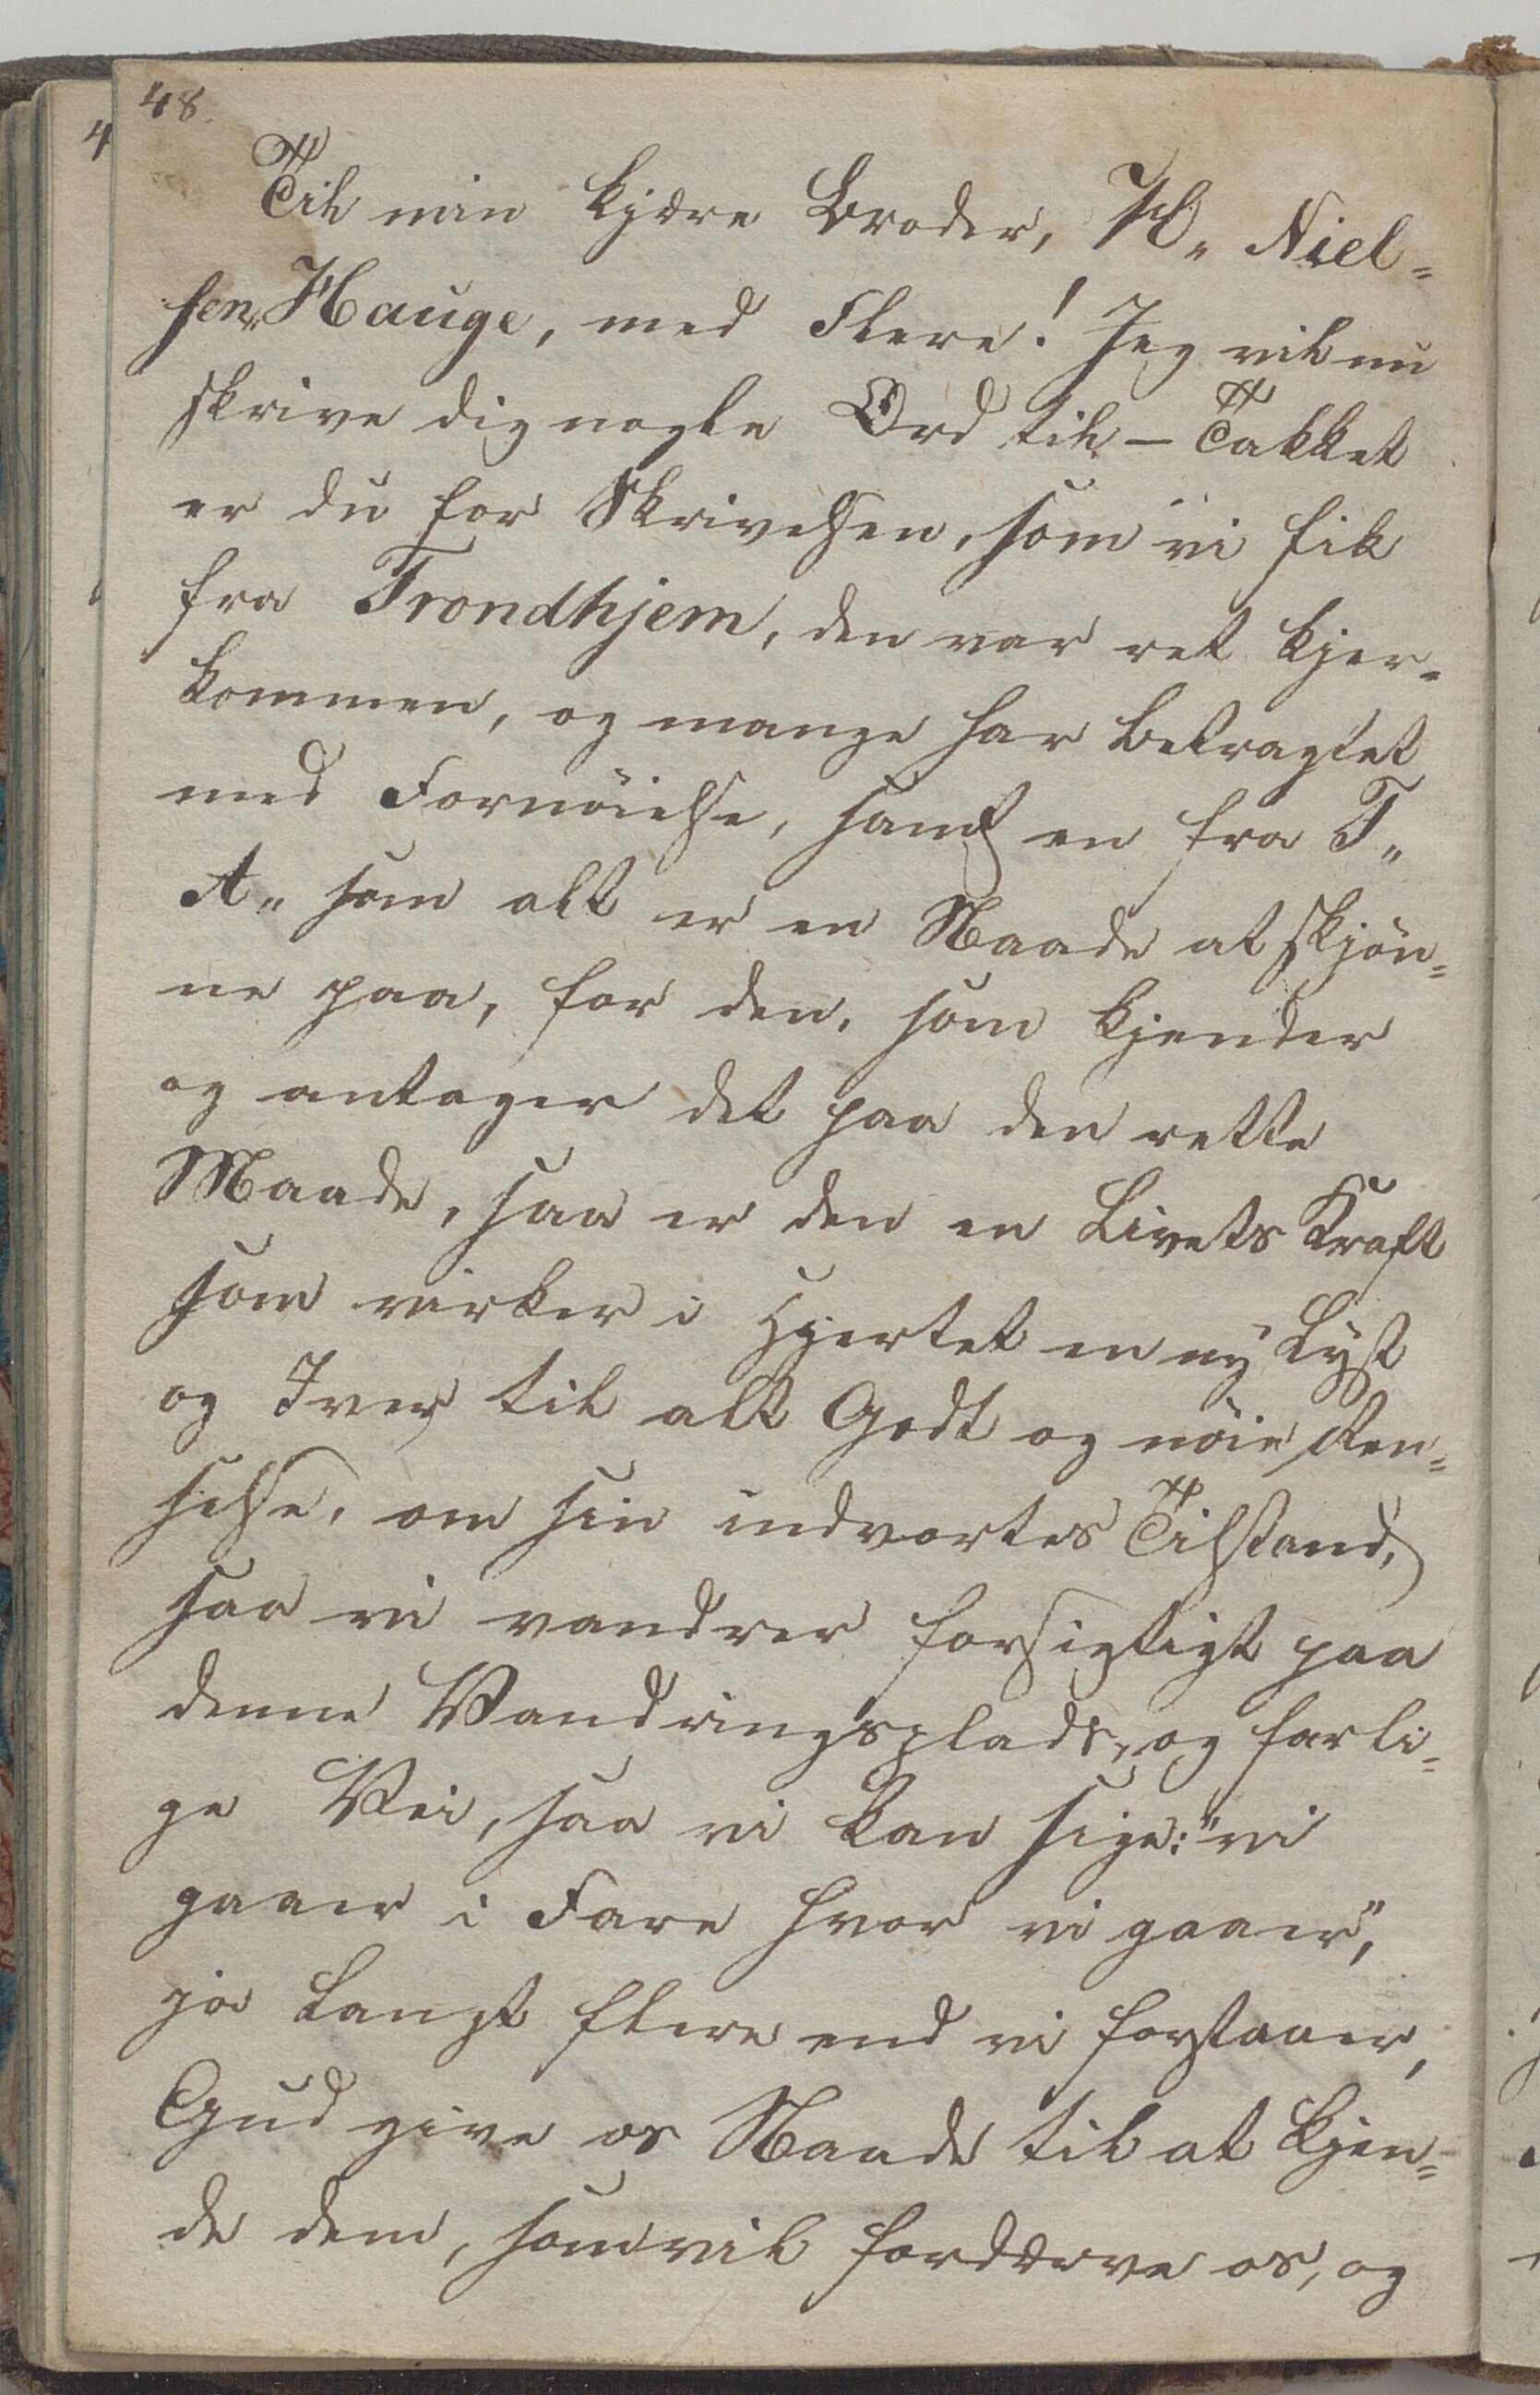 48.
Til min kjære Broder, H„ Niel=
sen Hauge, med Flere! Jeg vil nu
skrive dig nogle Ord til – Takket
er du for Skrivelsen, som vi fik
fra Trondhjem, den var ret kjer=
kommen, og mange har betragtet
med Fornöielse, samt en fra T„
A„ som alt er en Naade at skjön=
ne paa, for den, som kjender
og antager det paa den rette
Maade, saa er den en Livets Kraft
som virker i Hjertet en ny Lyst
og Iver til alt Godt og nöie Ran=
selse, om sin indvortes Tilstand,
saa vi vandrer forsigtigt paa
denne Vandringsplads, og farli=
ge Vei, saa vi kan sige: "vi
gaaer i Fare hvor vi gaaer",
ja langt flere end vi forstaaer,
Gud give os Naade til at kjen=
de dem, som vil fordærve os, og